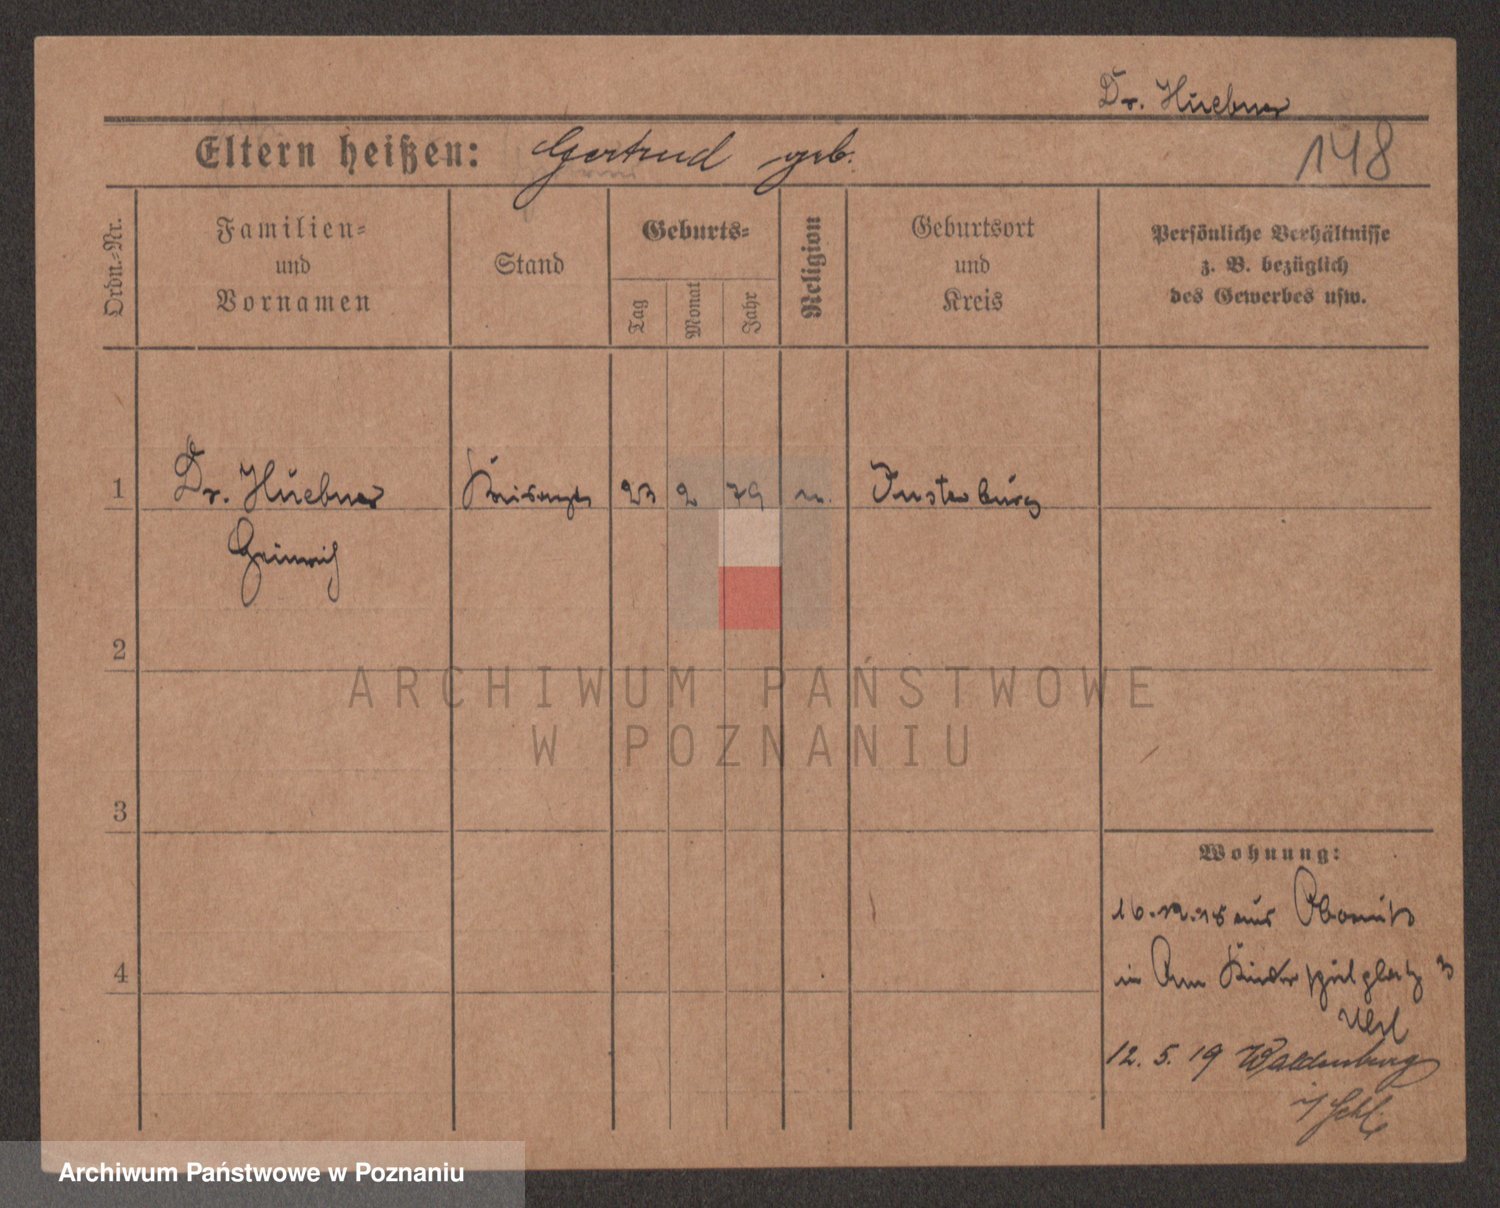 Dr. Huebner
Eltern heißen: Gertrud geb.
148
Ordn.-Nr.
Familien-
und
Vornamen
Stand
Geburts-
Tag
Monat
Jahr
Religion
Geburtsort
und
Kreis
Persönliche Verhältnisse
z. B. bezüglich
des Gewerbes usw.
1
Dr. Huebner
Kreisarzt
23
2
79
Insterburg
Heinrich
2
ARCHIWUM PAŃSTWOWE
W POZNANIU
3
Wohnung:
aus Obornik
4
in Am Kinderspielplatz 3
12. 5. 19 Waldenburg
i/ Schl.
Archiwum Państwowe w Poznaniu